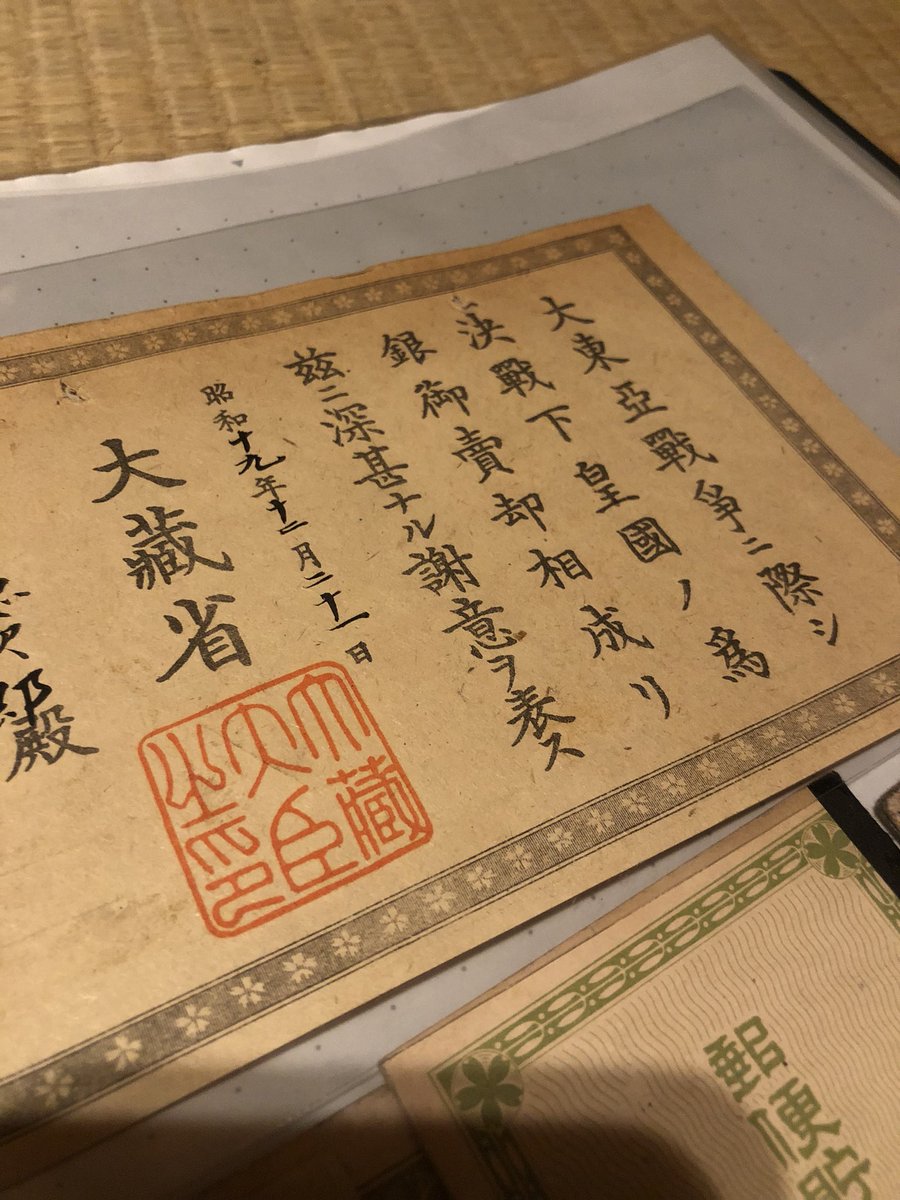 大東亞戰爭ニ際シ
決戰下皇國ノ爲
銀御賣却相成リ
茲ニ深甚ナル謝意ヲ表ス
昭和十九年十二月二十一日
大藏省
大藏大臣之印
郎殿
郵便貯